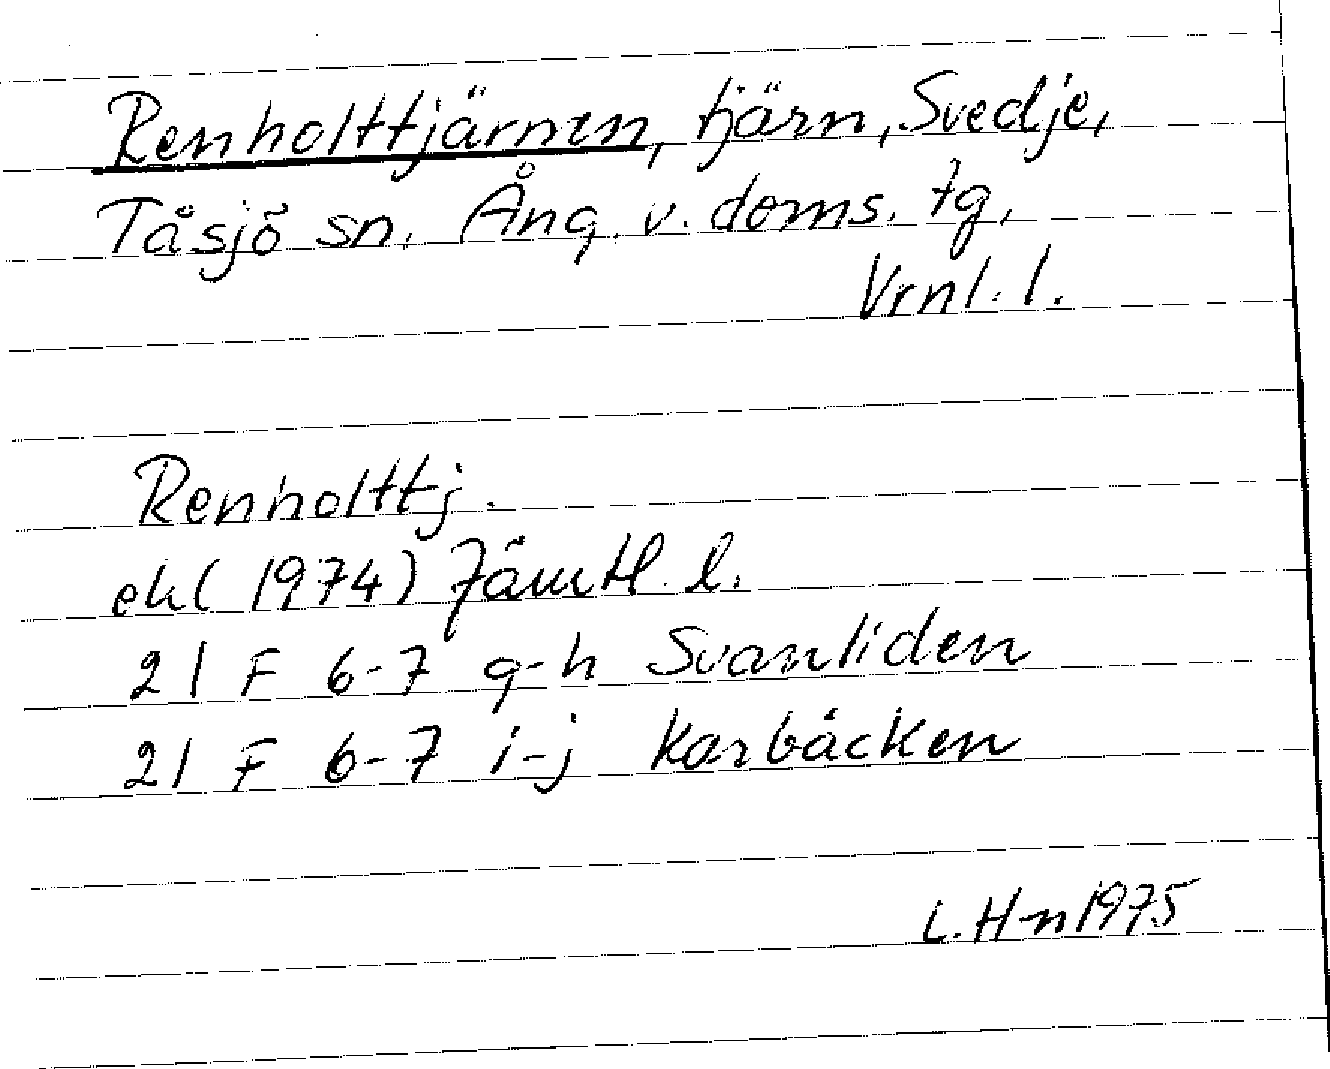 Renholttjärnen, tjärn, Svedje,
Tåsjö sn. Ång. v. doms. tg,
Vrnl. l.
Renholttj.
ek (1974) Jämtl. l.
21 F 6-7 g-h Svanliden
21 F 6-7 i-j Karbäcken
L. H-n 1975